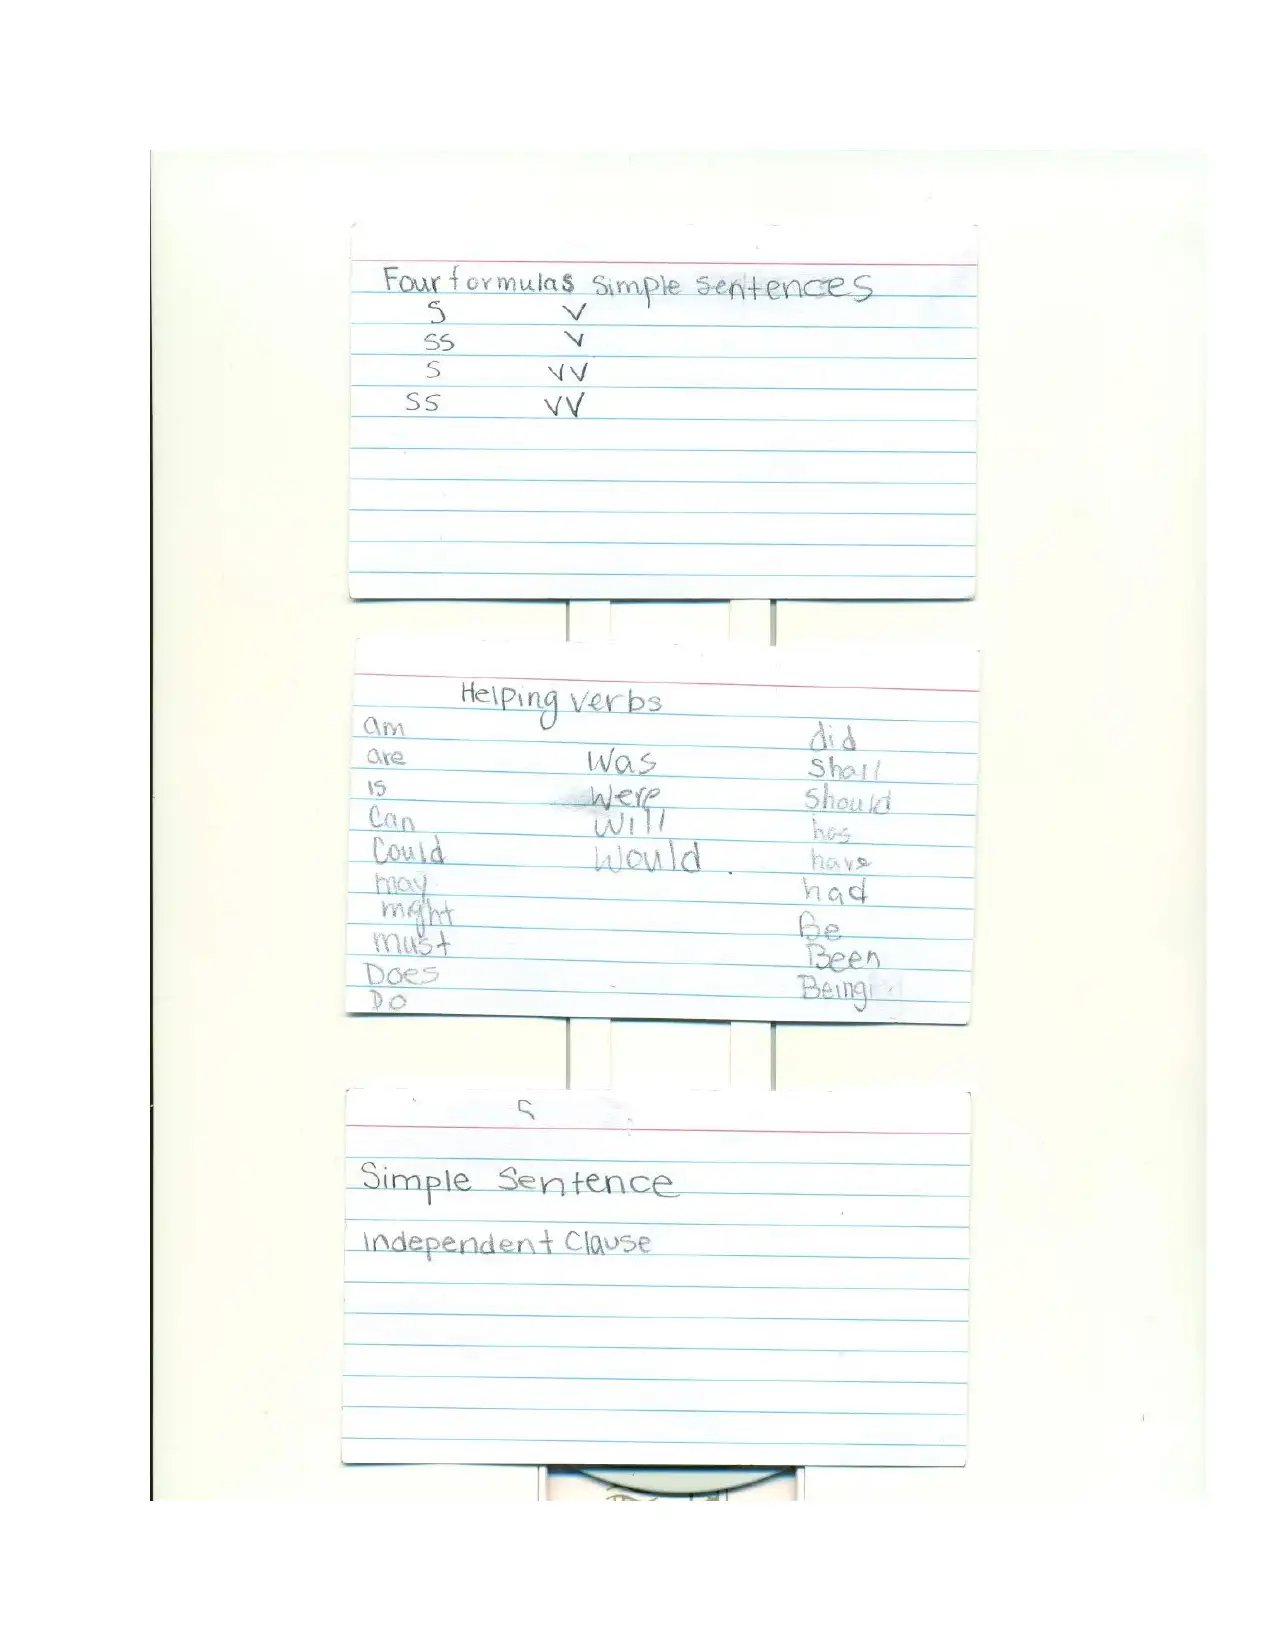 Four formulas Simple Sentences
S V
SS V
S VV
SS VV
Helping verbs
am
are
is
Can
Could
may
mght
must
Does
Do
Was
Were
Will
Would
did
Shall
Should
has
have
had
Be
Been
Being
S
Simple Sentence
Independent Clause